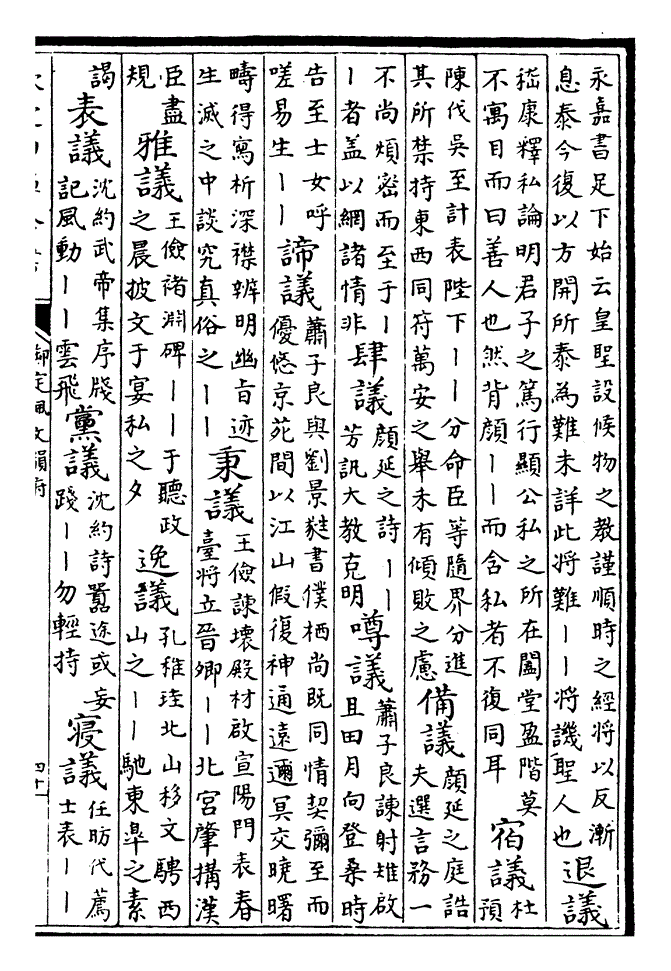 永嘉書足下始云皇聖設候物之教謹順時之經將以反漸
息泰今復以方開所泰為難未詳此將難丨丨將譏聖人也
退議
嵇康釋私論明君子之篤行顯公私之所在闔堂盈階莫
不寓目而曰善人也然背顔丨丨而含私者不復同耳
宿議
杜
預
陳伐吳至計表陛下丨丨分命臣等隨界分進
其所禁持東西同符萬安之舉未有傾敗之慮
備議
顔延之庭誥
夫選言務一
不尚煩密而至于丨
丨者盖以網諸情非
肆議
顔延之詩丨丨
芳訊大教克明
噂議
蕭子良諫射雉啟
且田月向登桑時
告至士女呼
嗟易生丨丨
諦議
蕭子良與劉景蕤書僕栖尚既同情契彌至而
優悠京苑間以江山假復神通遠邇冥交曉曙
疇得寫析深襟辨明幽旨迹
生滅之中談究真俗之丨丨
秉議
王儉諫壞殿材啟宣陽門表春
臺將立晉卿丨丨北宮肇搆漢
臣盡
規
雅議
王儉禇淵碑丨丨于聽政
之晨披文于宴私之夕
逸議
孔稚珪北山移文騁西
山之丨丨馳東臯之素
謁
表議
沈約武帝集序牋
記風動丨丨雲飛
黨議
沈約詩嚻途或妄
踐丨丨勿輕持
寢議
任昉代薦
士表丨丨
御定佩文韻府
四十一